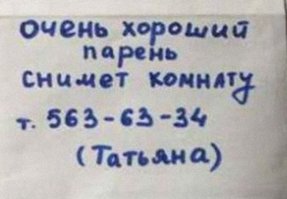 очень хороший
парень
снимет комнату
т. 563-63-34
(Татьяна)